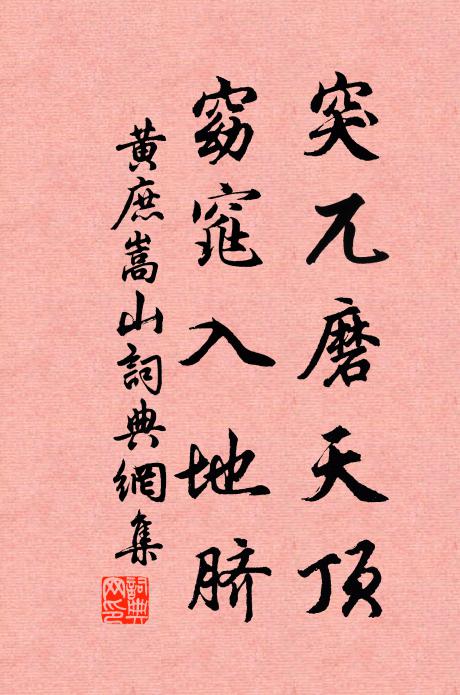 突兀磨天顶
窈窕入地脐
黄庶嵩山詞典網集
詞典
网印